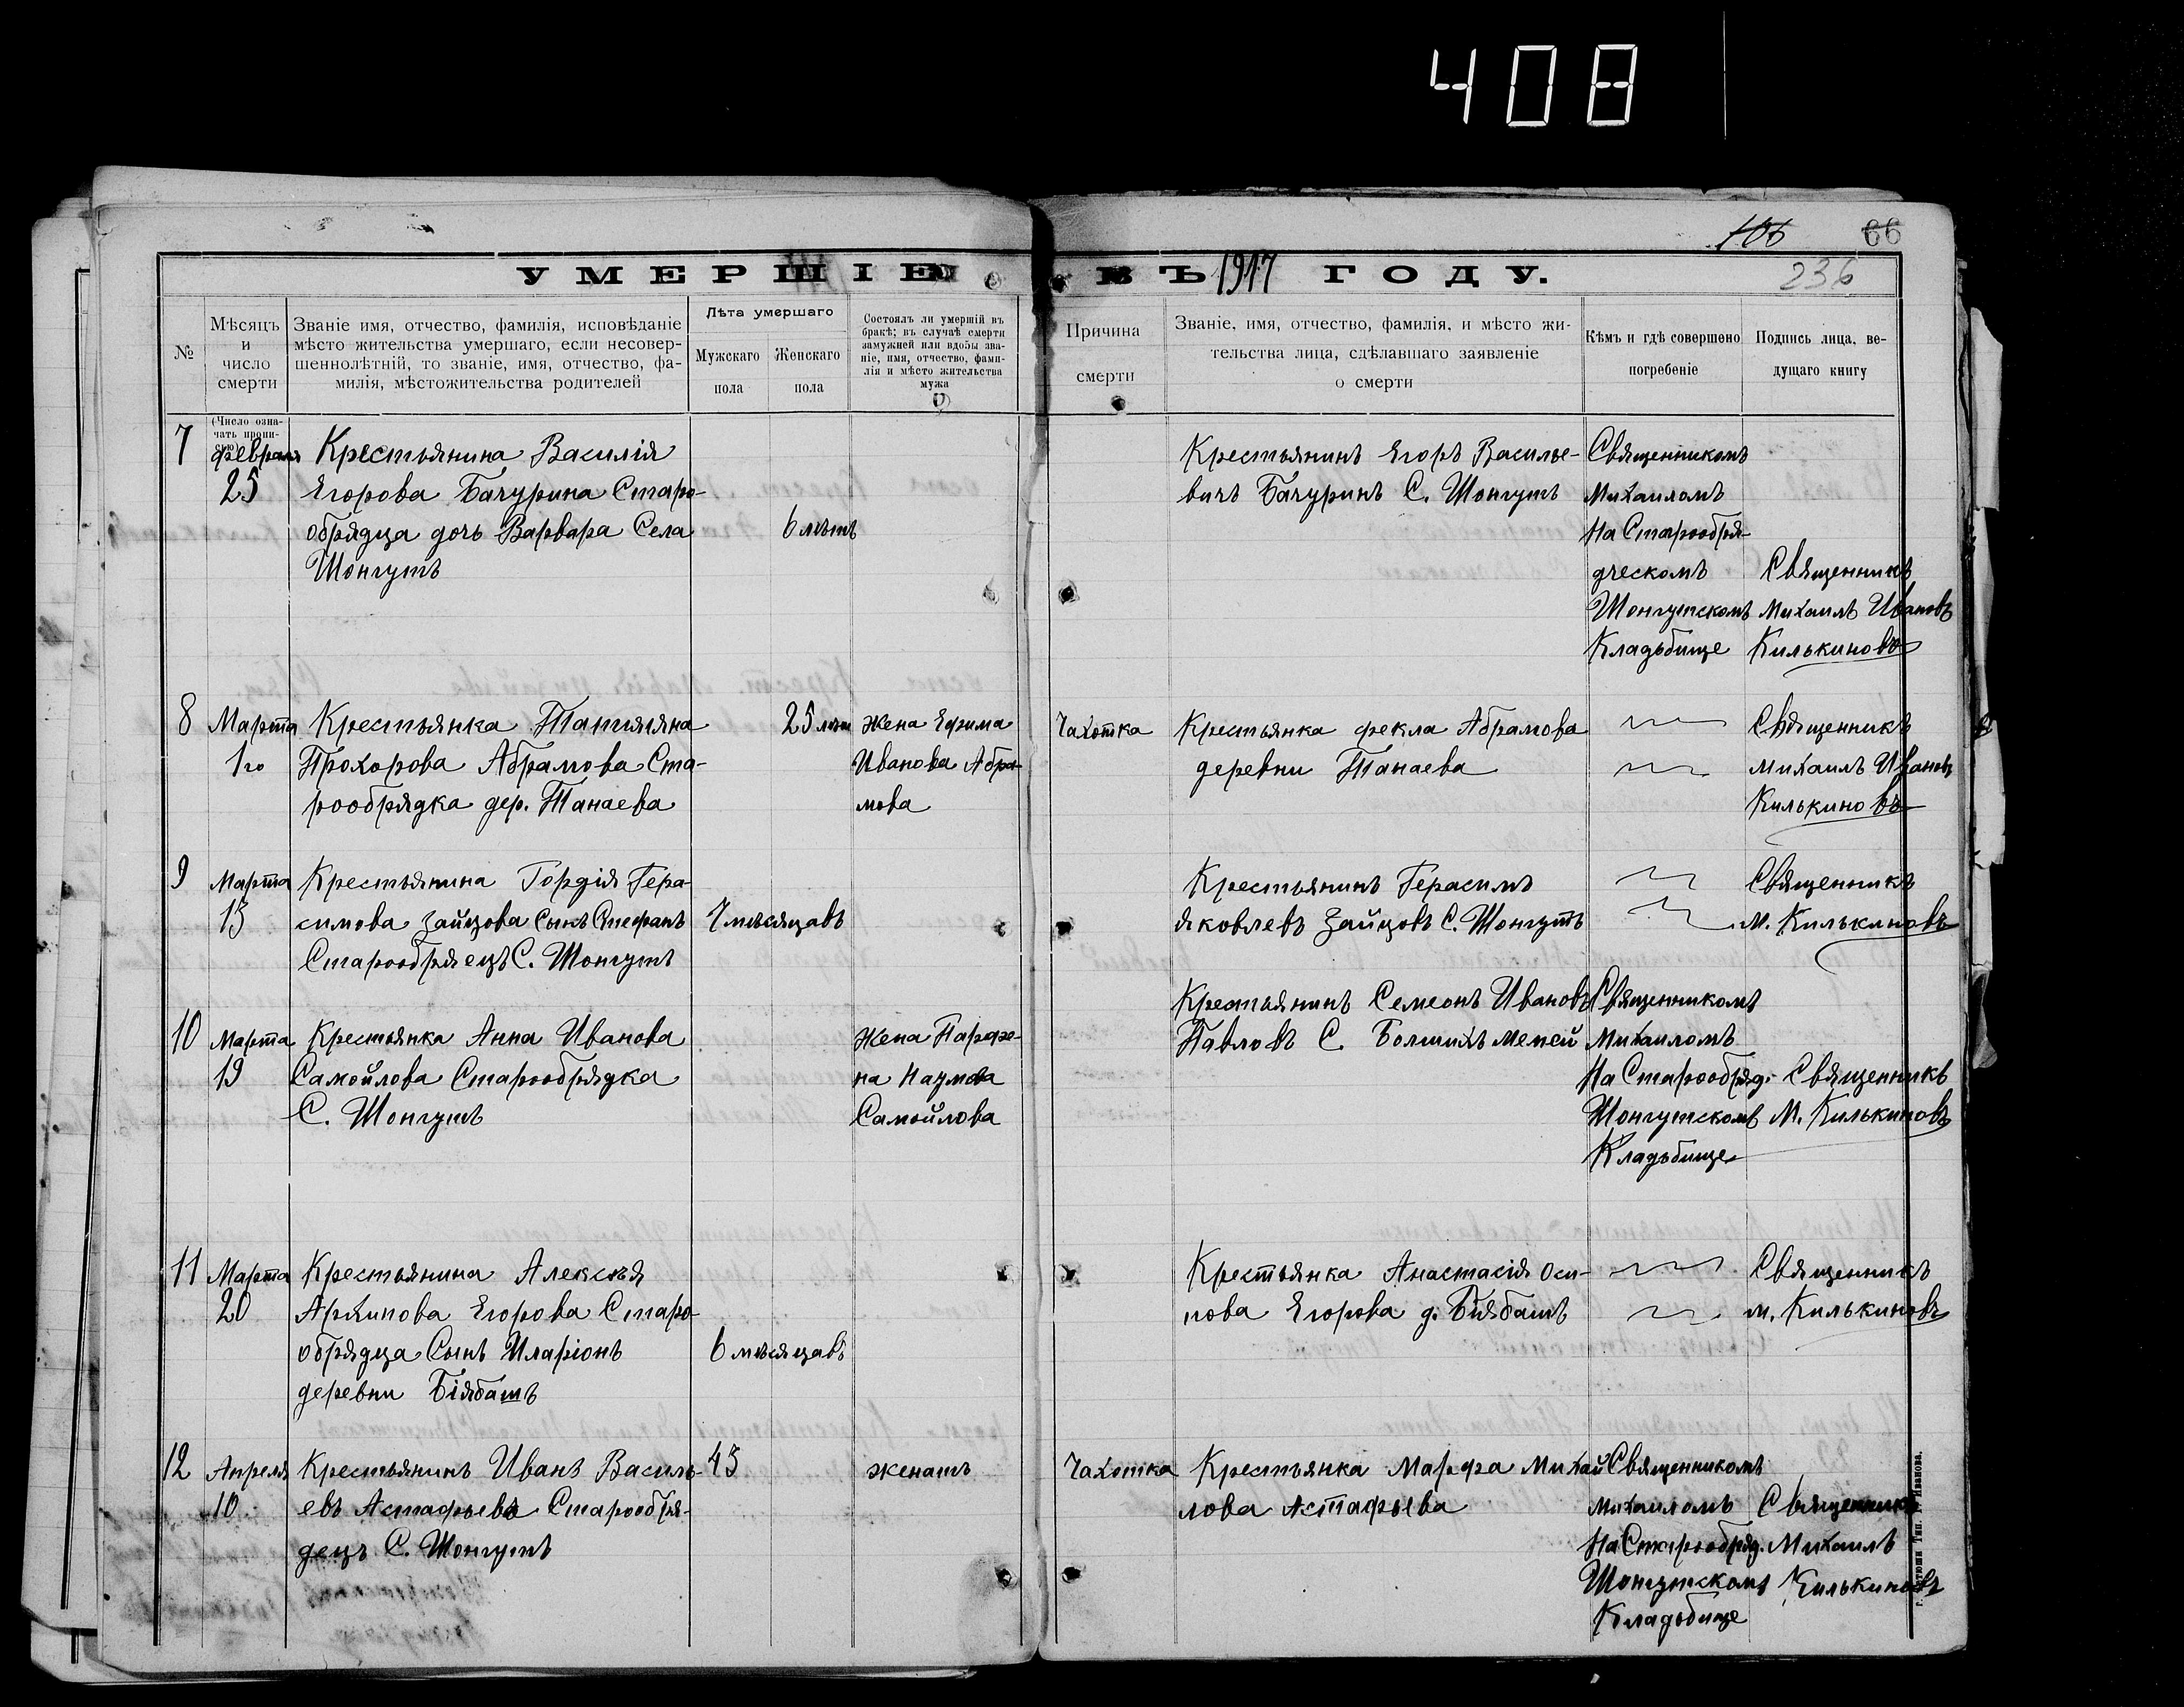 408
106 66
УМЕРШІЕ ВЪ 1917 ГОДУ.
236
№
Мѣсяцъ
и
число
смерти
Званіе имя, отчество, фамилія, исповѣданіе
мѣсто жительства умершаго, если несовер-
шеннолѣтній, то званіе, имя, отчество, фа-
милія, мѣстожительства родителей
Лѣта умершаго
Мужскаго
пола
Женскаго
пола
Состоялъ ли умершій въ
бракѣ; въ случаѣ смерти
замужней или вдовы зва-
ніе, имя, отчество, фами-
лія и мѣсто жительства
мужа
Причина
смерти
Званіе, имя, отчество, фамилія, и мѣсто жи-
тельства лица, сдѣлавшаго заявленіе
о смерти
Кѣмъ и гдѣ совершено
погребеніе
Подпись лица, ве-
дущаго книгу
(Число озна-
чать пропи-
сью)
7
февраля
25
Крестьянина Василія
Егорова Бачурина Старо-
обрядца дочь Варвара Села
Шонгутъ
6 лѣтъ
Крестьянинъ Егоръ Василье-
вичъ Бачуринъ С. Шонгутъ
Священникомъ
Михаиломъ
На Старообря-
дческомъ
Шонгутскомъ
Кладьбище
Священникъ
Михаилъ Ивановъ
Килькиновъ
8
Марта
1го
Крестьянка Татіяна
Прохорова Абрамова Ста-
рообрядка дер. Танаева
25 лѣтъ
Жена Ефима
Иванова Абра-
мова
Чахотка
Крестьянка фекла Абрамова
деревни Танаева
Священникъ
Михаилъ Ивановъ
Килькиновъ
9
Марта
13
Крестьянина Гордія Гера-
симова Зайцова сынъ Стефанъ
Старообряецъ С. Шонгутъ
7 мѣсяцавъ
Крестьянинъ Герасимъ
яковлевъ Зайцовъ С. Шонгутъ
Священникъ
М. Килькиновъ
10
Марта
19
Крестьянка Анна Иванова
Самойлова Старообрядка
С. Шонгутъ
Жена Парфе-
на Наумова
Самойлова
Крестьянинъ Семеонъ Ивановъ
Павловъ С. Болшихъ Менси
Священникомъ
Михаиломъ
На Старообряд.
Шонгутскомъ
Кладьбище
Священникъ
М. Килькиновъ
11
Марта
20
Крестьянина Алексѣя
Архипова Егорова Старо-
обрядца Сынъ Иларіонъ
деревни Біябашъ
6 мѣсяцавъ
Крестьянка Анастасія Оси-
пова Егорова д. Біябашъ
Священникъ
м. Килькиновъ
12
Апреля
10
Крестьянинъ Иванъ Василь-
евъ Астафьевъ Старообря-
децъ С. Шонгутъ
43
женатъ
Чахотка
Крестьянка Марфа Михай
лова Астафьева
Священникомъ
Михаиломъ
На Старообряд.
Шонгутскомъ
Кладьбище
Священникъ
Михаилъ
Килькиновъ